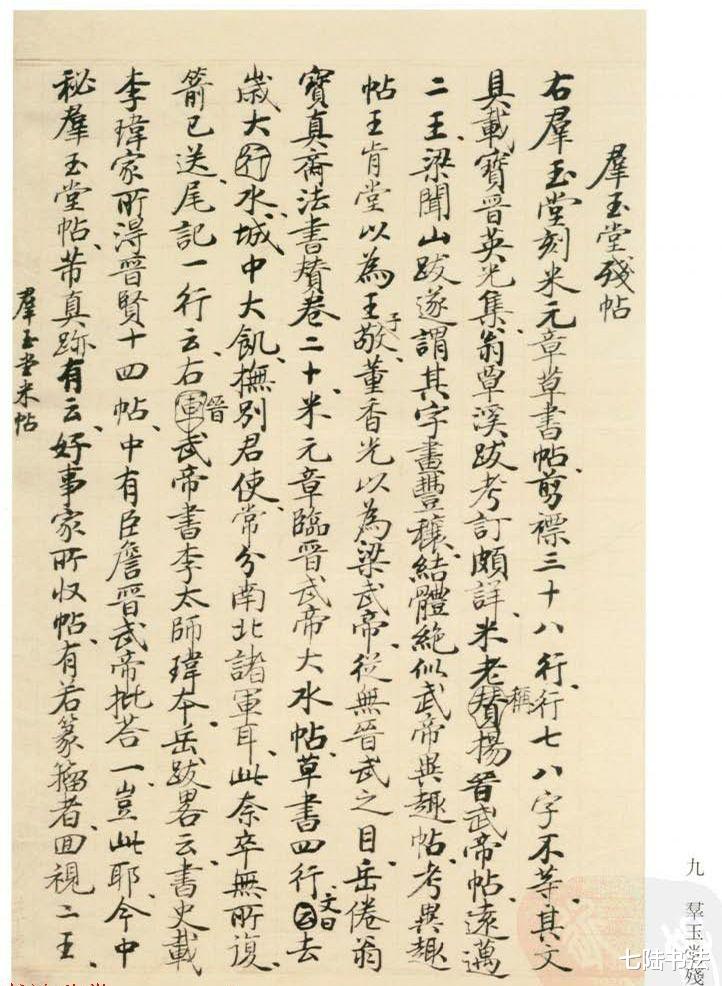 羣玉堂殘帖
右羣玉堂刻米元章草書帖、剪褾三十八行、行七八字不等、其文
具載寶晉英光集、翁草溪跋考訂頗詳、米老贊稱揚晉武帝帖、遠邁
二王、梁聞山跋遂謂其字畫豐穠、結體絶似武帝異趣帖、考異趣
帖王肯堂以為王子敬、董香光以為梁武帝、從無晉武之目、岳倦翁
寶真齋法書贊卷二十、米元章臨晉武帝大水帖、草書四行、云文曰去
歲大行水、城中大飢、撫別君使、常分南北諸軍耳、此奈卒無所復、
箭已送、尾記一行云、右軍晉武帝書李太師瑋本、岳跋畧云、書史載
李瑋家所得晉賢十四帖、中有臣詹晉武帝批荅一、豈此耶、今中
秘羣玉堂帖、芾真跡有云、好事家所收帖、有若篆籀者、回視二王、
羣玉堂米帖
九 羣玉堂殘
七陆书法